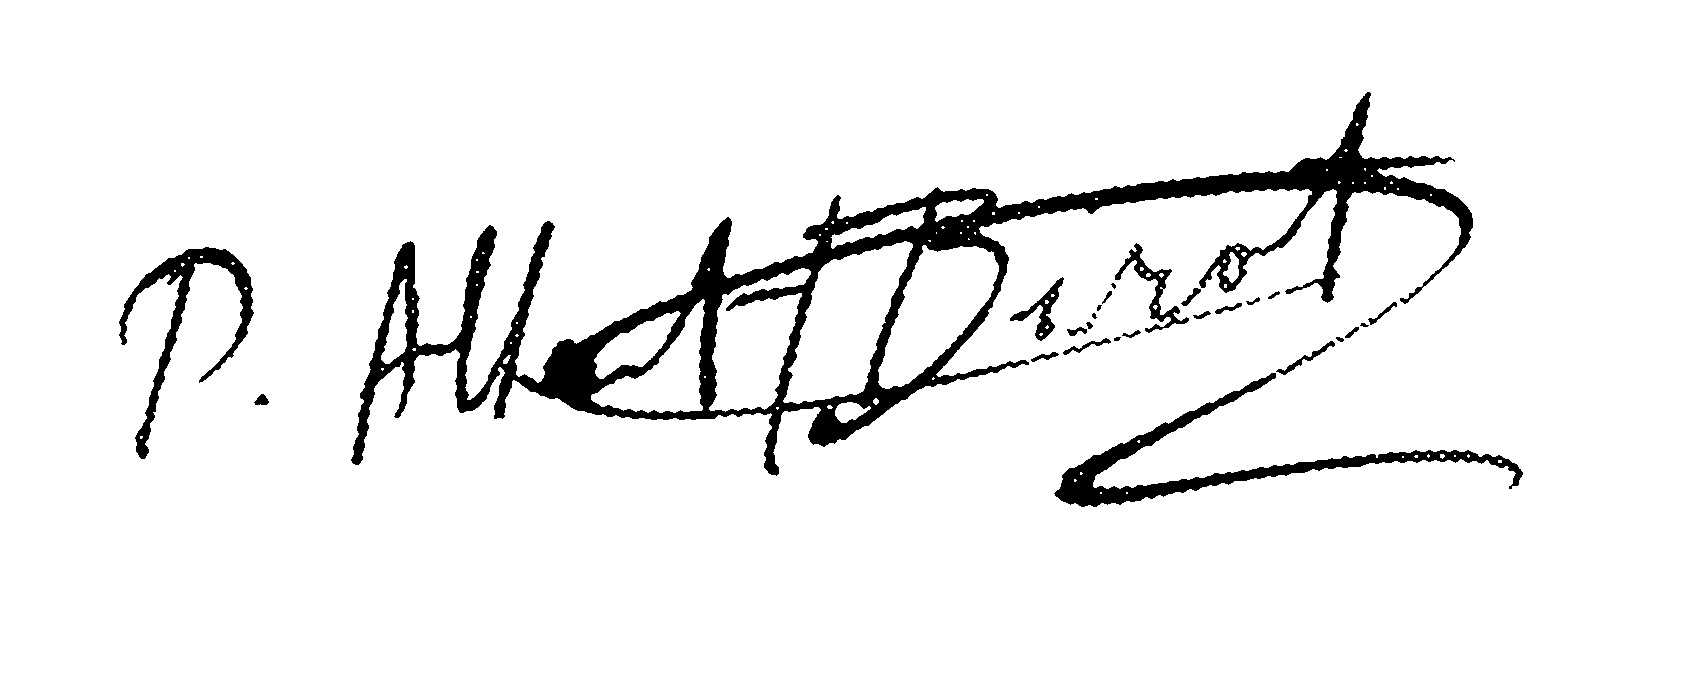 P. Albert-Birot